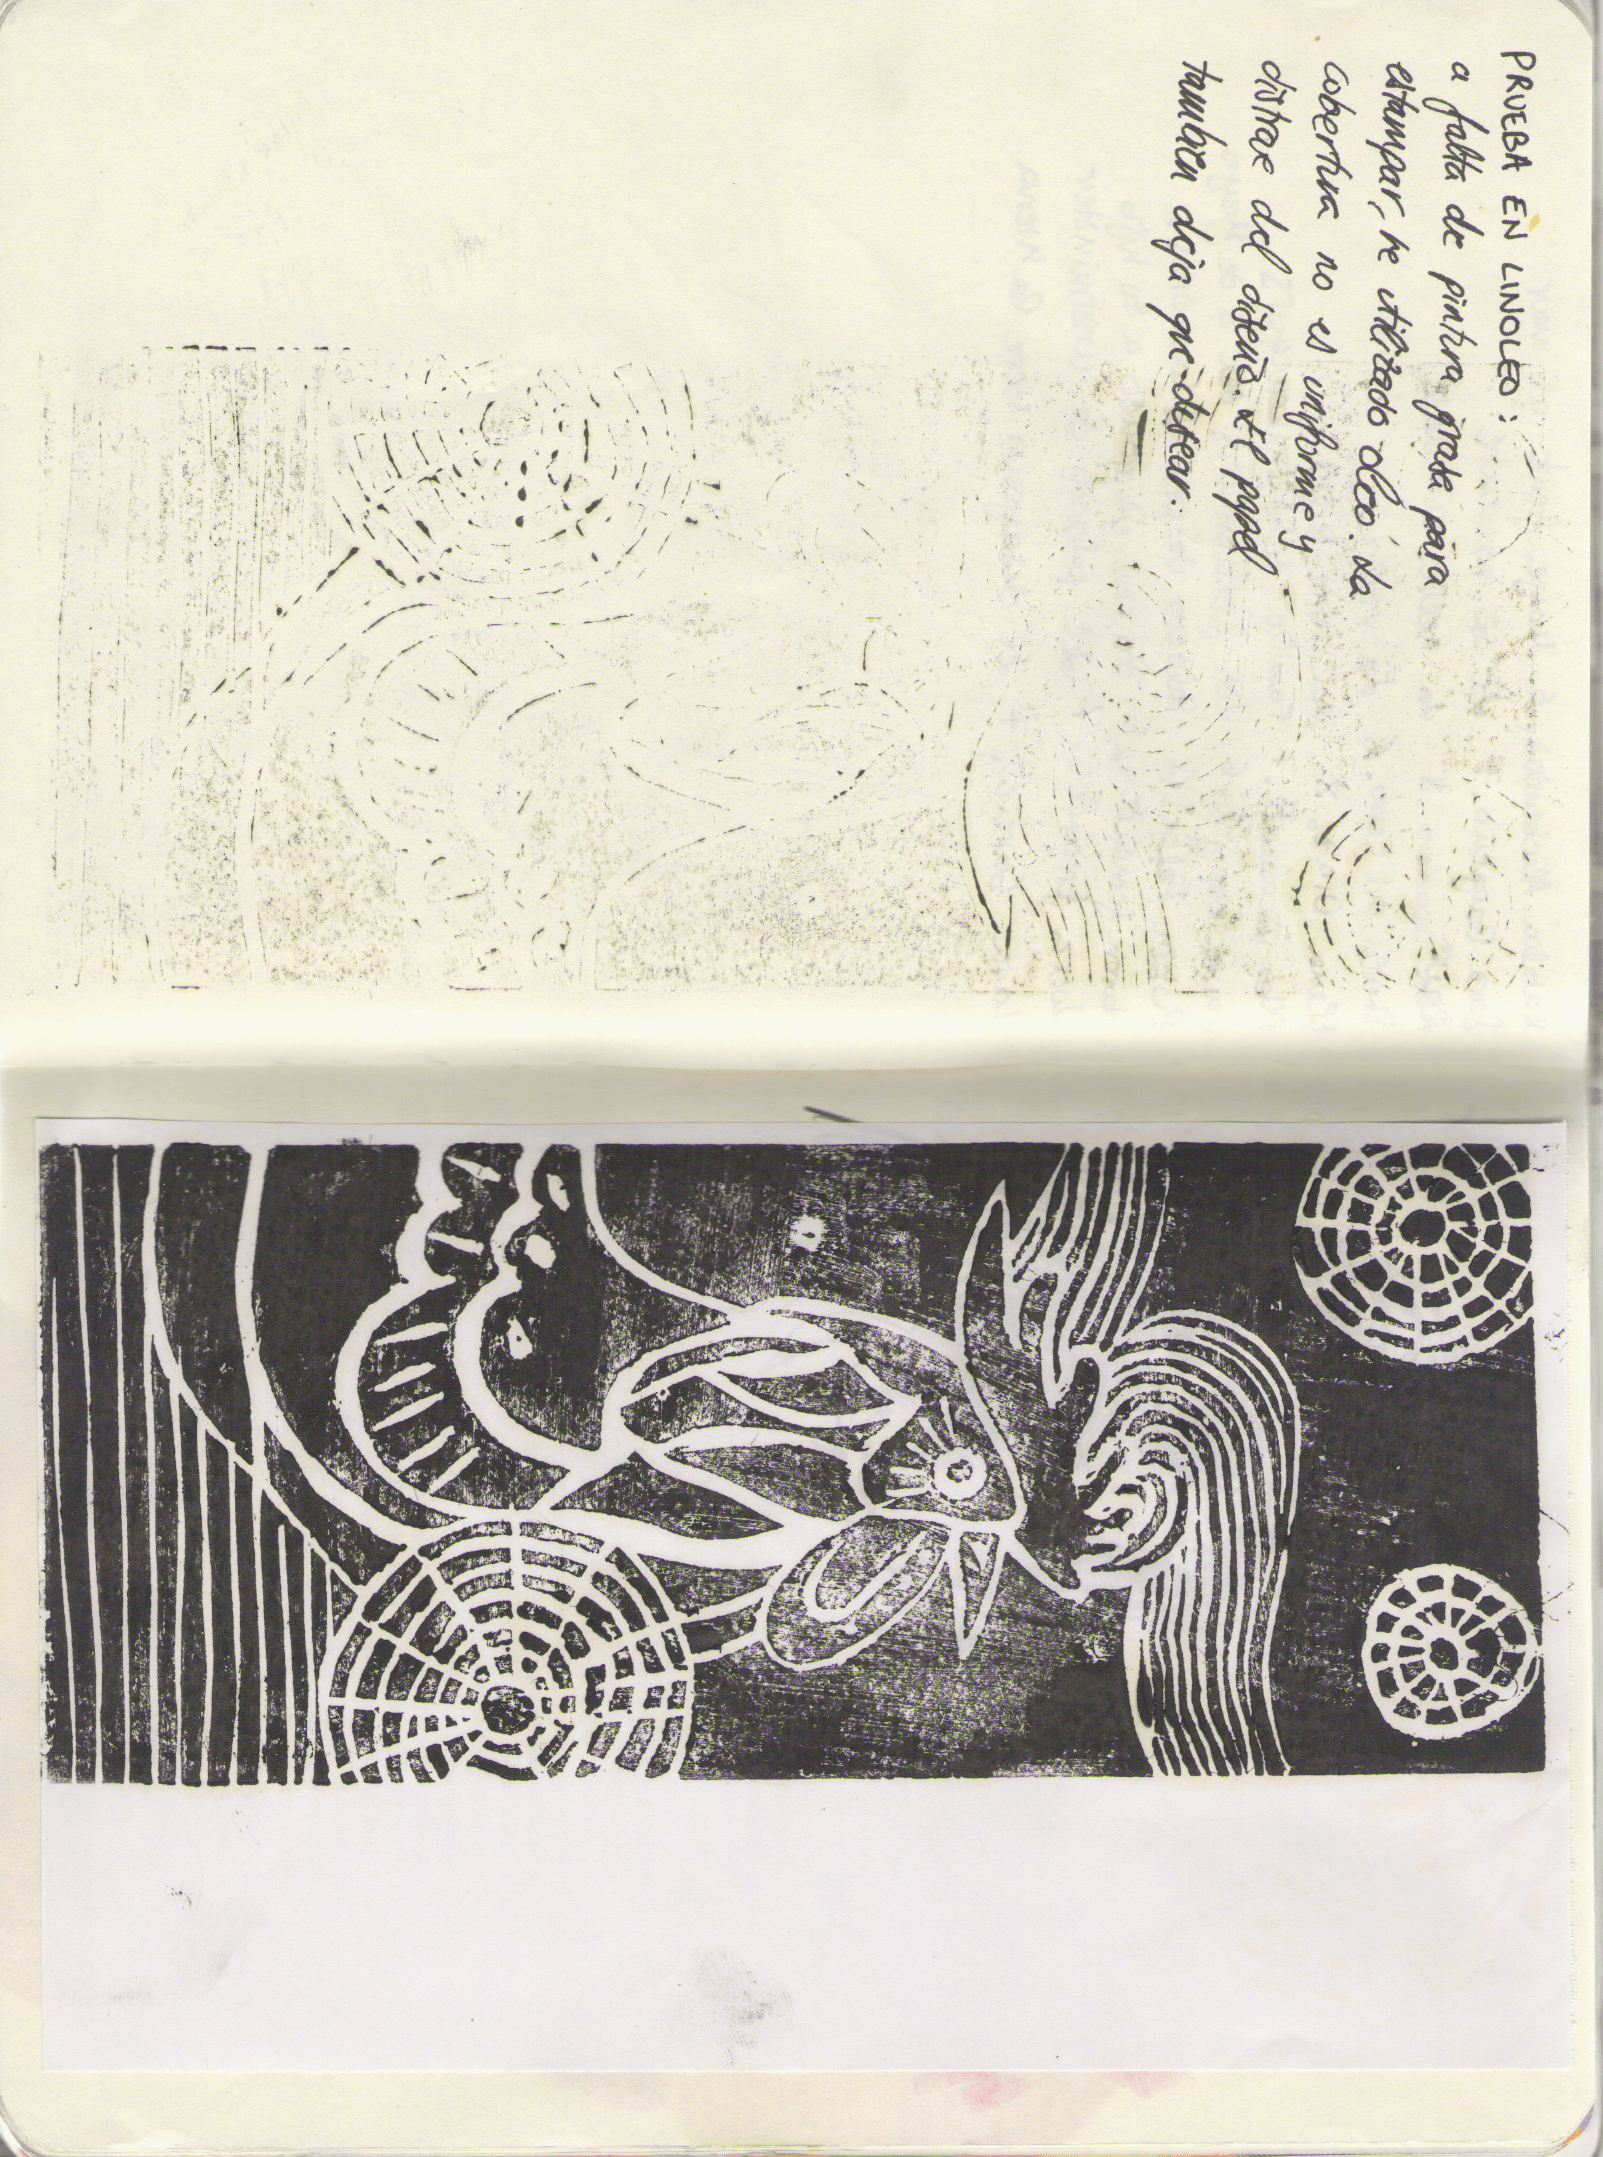 PRUEBA EN LINOLEO:
a falta de pintura grasa para
estampar, he utilizado oleo. La
cobertura no es uniforme y
distrae del diseño. El papel
tambien deja que desear.